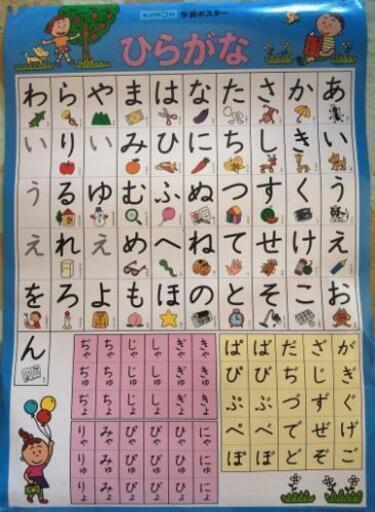 KUMON 学習ポスター
ひらがな
あいうえお
かきくけこ
さしすせそ
たちつてと
なにぬねの
はひふへほ
まみむめも
やいゆえよ
らりるれろ
わいうえを
ん
がぎぐげご
ざじずぜぞ
だぢづでど
ばびぶべぼ
ぱぴぷぺぽ
きゃ きゅ きょ
ぎゃ ぎゅ ぎょ
しゃ しゅ しょ
じゃ じゅ じょ
ちゃ ちゅ ちょ
ぢゃ ぢゅ ぢょ
にゃ にゅ にょ
ひゃ ひゅ ひょ
びゃ びゅ びょ
ぴゃ ぴゅ ぴょ
みゃ みゅ みょ
りゃ りゅ りょ